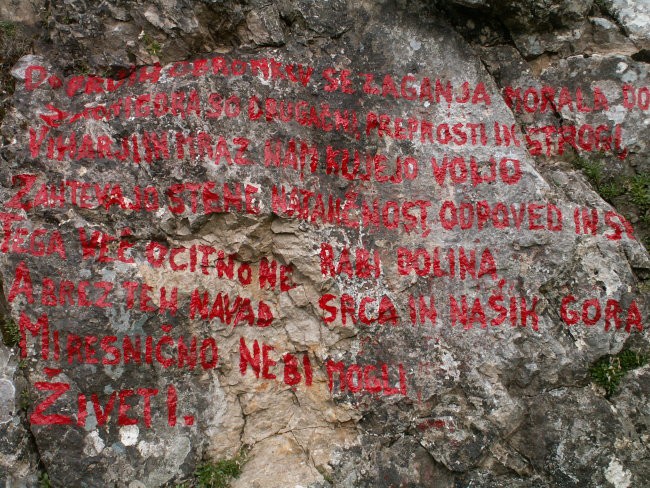 DO PRVIH OBRONKOV SE ZAGANJA MORALA DO
ZAKONI GORA SO DRUGAČNI, PREPROSTI IN STROGI,
VIHARJI IN MRAZ NAM KUJEJO VOLJO
ZAHTEVAJO STRME NATANČNOST ODPOVED IN
TEGA VLČ OČITNO NE RABI DOLINA,
A BREZ TEH NAVAD SRCA IN NAŠIH GORA
MI RESNIČNO NE BI MOGLI
ŽIVETI.